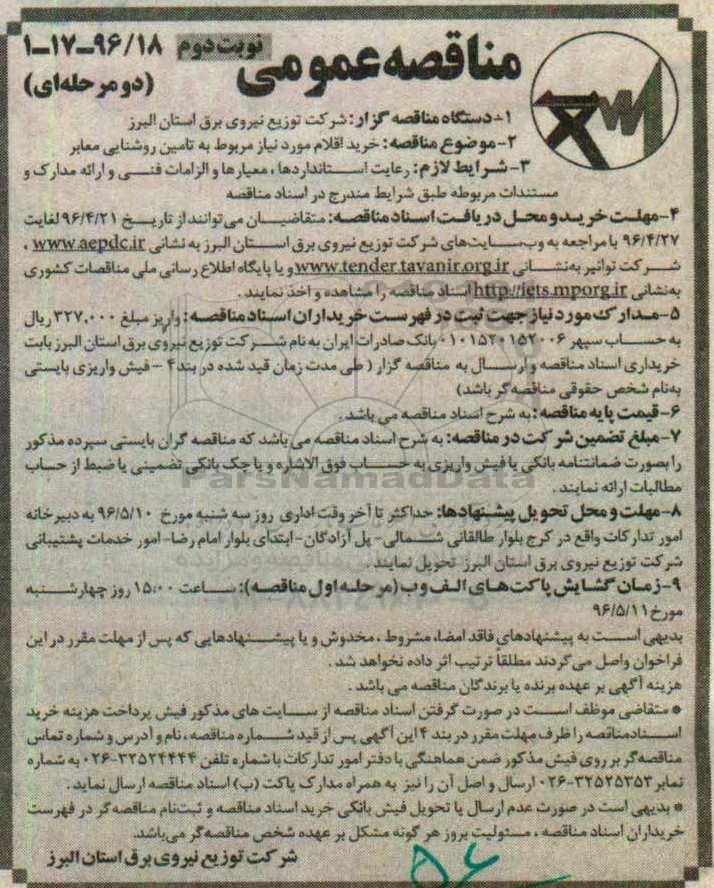 مناقصه عمومی نوبت دوم ۹۶/۱۸-۱۷-۱
(دو مرحله‌ای)
۱-دستگاه مناقصه گزار: شرکت توزیع نیروی برق استان البرز
۲-موضوع مناقصه: خرید اقلام مورد نیاز مربوط به تامین روشنایی معابر
۳-شرایط لازم: رعایت استانداردها، معیارها و الزامات فنی و ارائه مدارک و
مستندات مربوطه طبق شرایط مندرج در اسناد مناقصه
۴-مهلت خرید و محل دریافت اسناد مناقصه: متقاضیان می‌توانند از تاریخ ۹۶/۴/۲۱ لغایت
۹۶/۴/۲۷ با مراجعه به وب‌سایت‌های شرکت توزیع نیروی برق استان البرز به نشانی www.aepdc.ir ،
شرکت توانیر به‌نشانی www.tender.tavanir.org.ir و یا پایگاه اطلاع رسانی ملی مناقصات کشوری
به‌نشانی http://iets.mporg.ir اسناد مناقصه را مشاهده و اخذ نمایند.
۵-مدارک مورد نیاز جهت ثبت در فهرست خریداران اسناد مناقصه: واریز مبلغ ۳۲۷,۰۰۰ ریال
به حساب سپهر ۰۱۰۱۵۲۰۱۵۲۰۰۶ بانک صادرات ایران به نام شرکت توزیع نیروی برق استان البرز بابت
خریداری اسناد مناقصه و ارسال به مناقصه گزار (طی مدت زمان قید شده در بند ۴ - فیش واریزی بایستی
به‌نام شخص حقوقی مناقصه‌گر باشد)
۶-قیمت پایه مناقصه: به شرح اسناد مناقصه می باشد.
۷-مبلغ تضمین شرکت در مناقصه: به شرح اسناد مناقصه می باشد که مناقصه گران بایستی سپرده مذکور
را بصورت ضمانتنامه بانکی یا فیش واریزی به حساب فوق الاشاره و یا چک بانکی تضمینی یا ضبط از حساب
مطالبات ارائه نمایند.
ParsNamadData
۸-مهلت و محل تحویل پیشنهادها: حداکثر تا آخر وقت اداری روز سه شنبه مورخ ۹۶/۵/۱۰ به دبیرخانه
امور تدارکات واقع در کرج بلوار طالقانی شمالی- پل آزادگان- ابتدای بلوار امام رضا- امور خدمات پشتیبانی
شرکت توزیع نیروی برق استان البرز تحویل نمایند.
۹-زمان گشایش پاکت‌های الف و ب (مرحله اول مناقصه): ساعت ۱۵:۰۰ روز چهارشنبه
مورخ ۹۶/۵/۱۱
بدیهی است به پیشنهادهای فاقد امضا، مشروط، مخدوش و یا پیشنهادهایی که پس از مهلت مقرر در این
فراخوان واصل می‌گردند مطلقاً ترتیب اثر داده نخواهد شد.
هزینه آگهی بر عهده برنده یا برندگان مناقصه می باشد.
* متقاضی موظف است در صورت گرفتن اسناد مناقصه از سایت های مذکور فیش پرداخت هزینه خرید
اسنادمناقصه را ظرف مهلت مقرر در بند ۴ این آگهی پس از قید شماره مناقصه، نام و آدرس و شماره تماس
مناقصه‌گر بر روی فیش مذکور ضمن هماهنگی با دفتر امور تدارکات با شماره تلفن ۳۲۵۲۴۴۴۴-۰۲۶ به شماره
نمابر ۳۲۵۲۵۳۵۳-۰۲۶ ارسال و اصل آن را نیز به همراه مدارک پاکت (ب) اسناد مناقصه ارسال نماید.
* بدیهی است در صورت عدم ارسال یا تحویل فیش بانکی خرید اسناد مناقصه و ثبت‌نام مناقصه‌گر در فهرست
خریداران اسناد مناقصه، مسئولیت بروز هر گونه مشکل بر عهده شخص مناقصه‌گر می‌باشد.
شرکت توزیع نیروی برق استان البرز